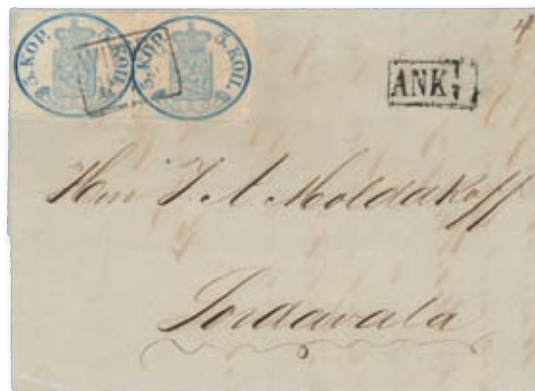 5 KOP. 5 КОП. 5 KOP. 5 КОП.
ANK.
Herr J. A. Moldakoff
Sordavala